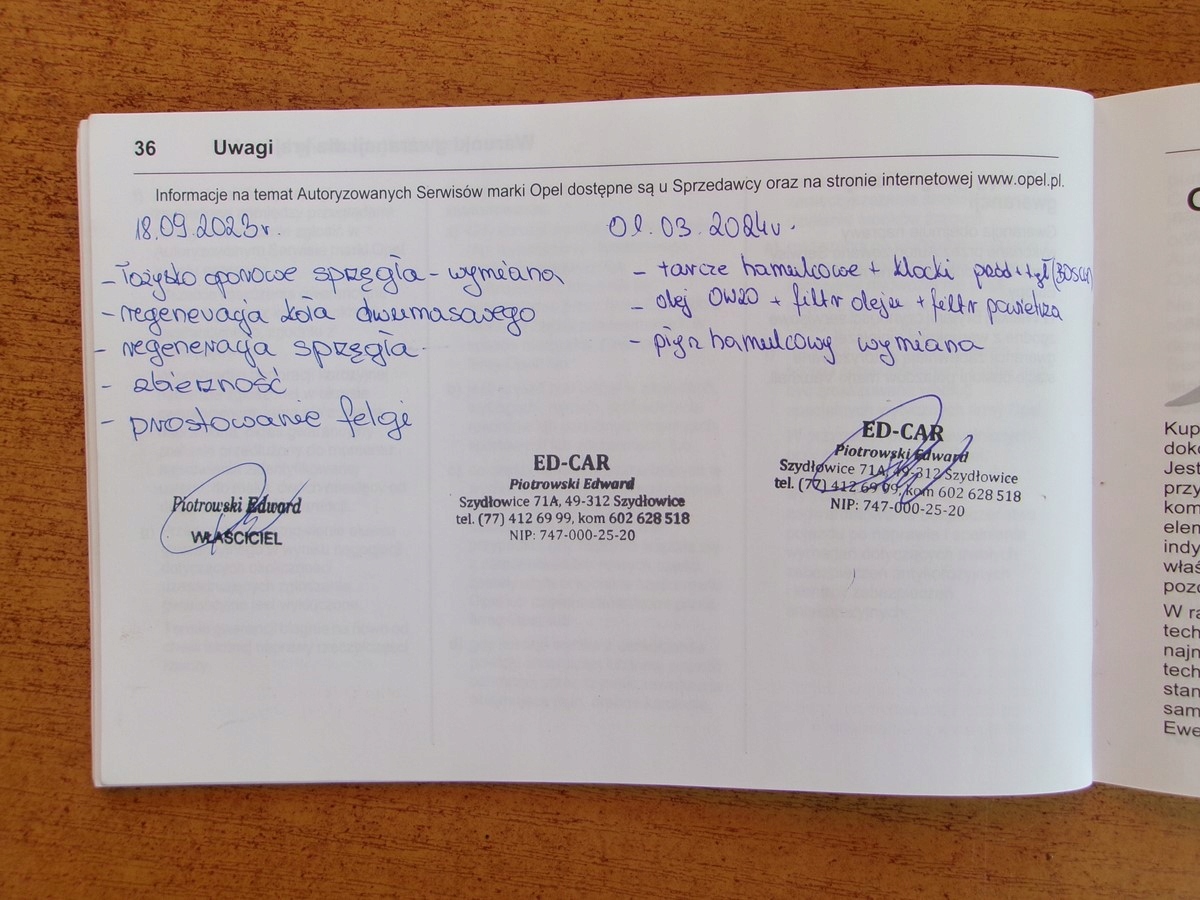 36 Uwagi
Informacje na temat Autoryzowanych Serwisów marki Opel dostępne są u Sprzedawcy oraz na stronie internetowej www.opel.pl.
18.09.2023r.
- łożysko oporowe sprzęgła - wymiana
- regeneracja koła dwumasowego
- regeneracja sprzęgła
- zbieżność
- prostowanie felgi
Piotrowski Edward
WŁAŚCICIEL
ED-CAR
Piotrowski Edward
Szydłowice 71A, 49-312 Szydłowice
tel. (77) 412 69 99, kom 602 628 518
NIP: 747-000-25-20
01.03.2024r.
- tarcze hamulcowe + klocki przód + tył (BOSCH)
- olej 0W20 + filtr oleju + filtr powietrza
- płyn hamulcowy wymiana
ED-CAR
Piotrowski Edward
Szydłowice 71A, 49-312 Szydłowice
tel. (77) 412 69 99, kom 602 628 518
NIP: 747-000-25-20
Kup
doko
Jest
przy
kom
elem
indy
właś
pozo
W ra
tech
najn
tech
stan
sam
Ewe